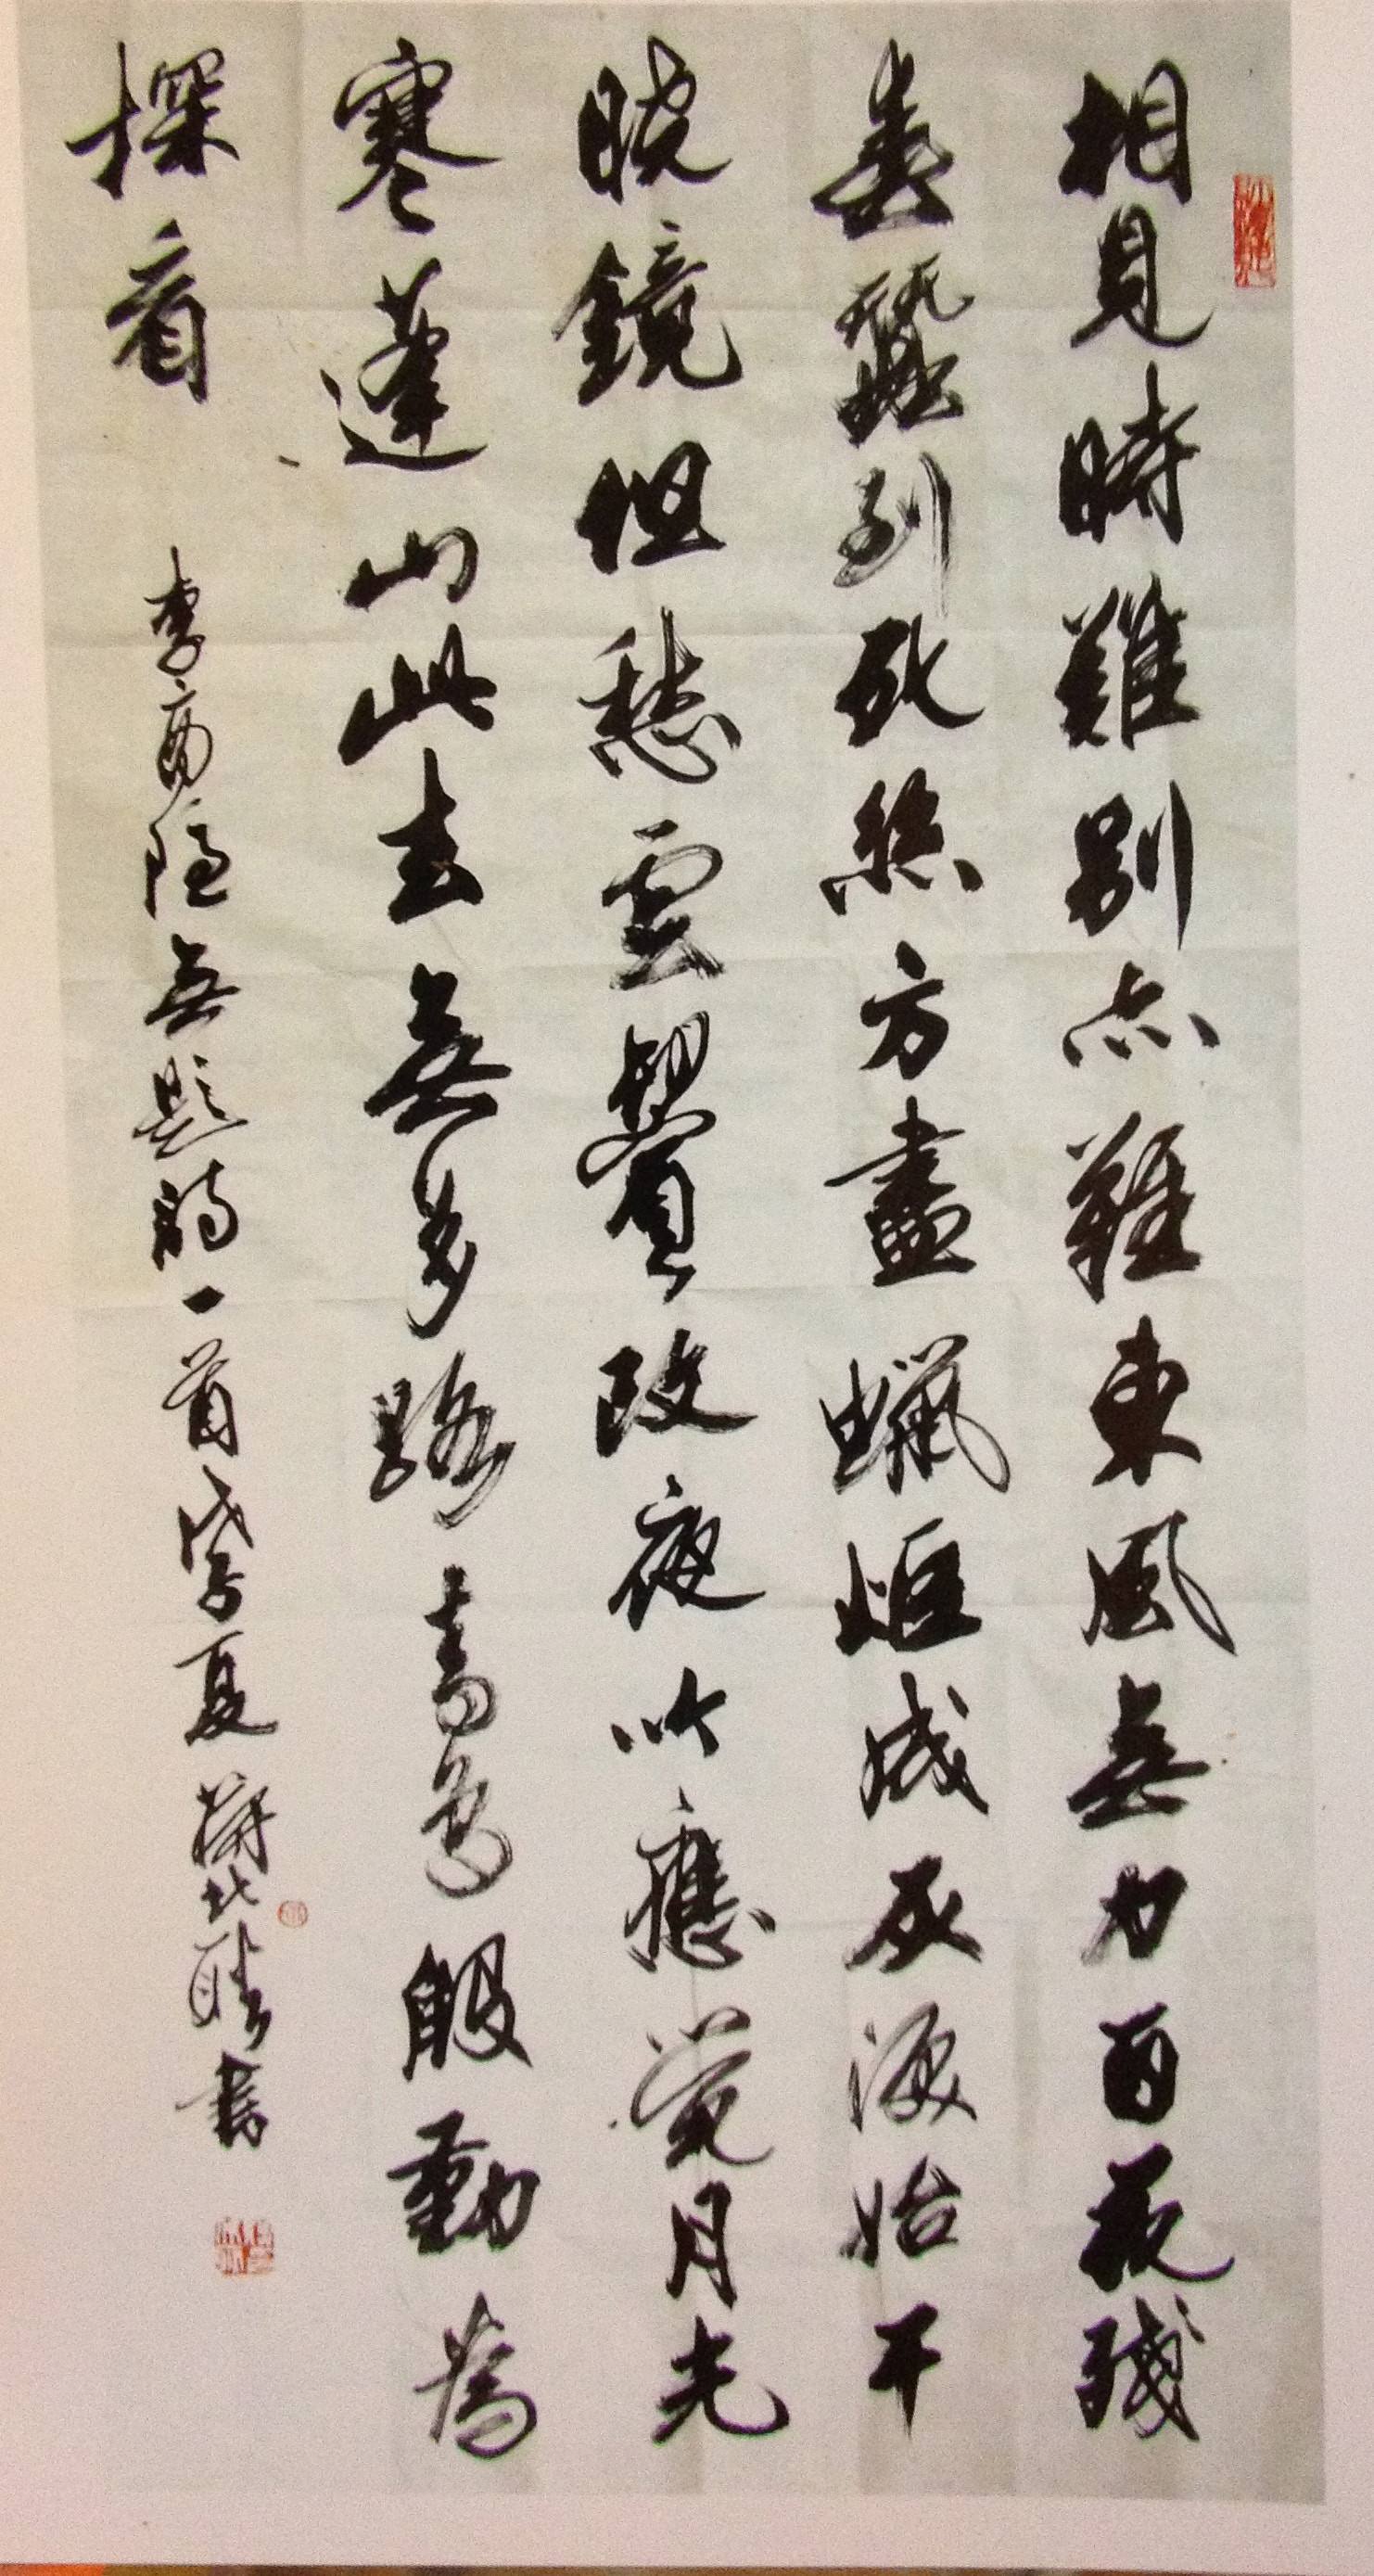 相見時難別亦難東風無力百花殘
春蠶到死絲方盡蠟炬成灰淚始干
曉鏡但愁雲鬢改夜吟應覺月光
寒蓬山此去無多路青鳥殷勤為
探看 李商隱無題詩一首 夏 書